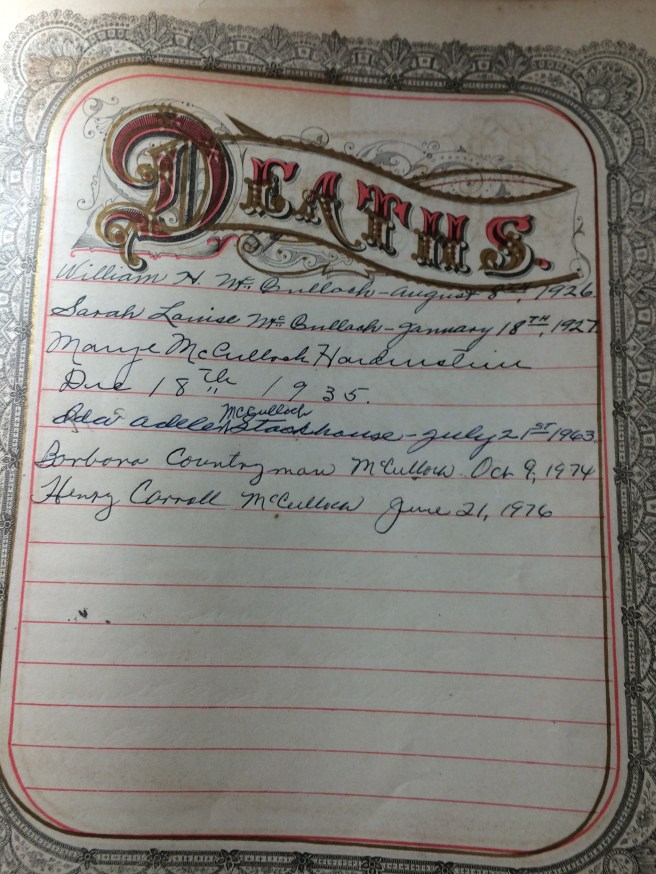 DEATHS.
William H. McCulloch – August 8th, 1926.
Sarah Louise McCulloch – January 18TH, 1927.
Marye McCulloch
Dec 18th 1935.
McCulloch
Ida Adele Stackhouse – July 21ST 1963.
Barbara Countryman McCulloch Oct 9, 1974
Henry Carroll McCulloch June 21, 1976